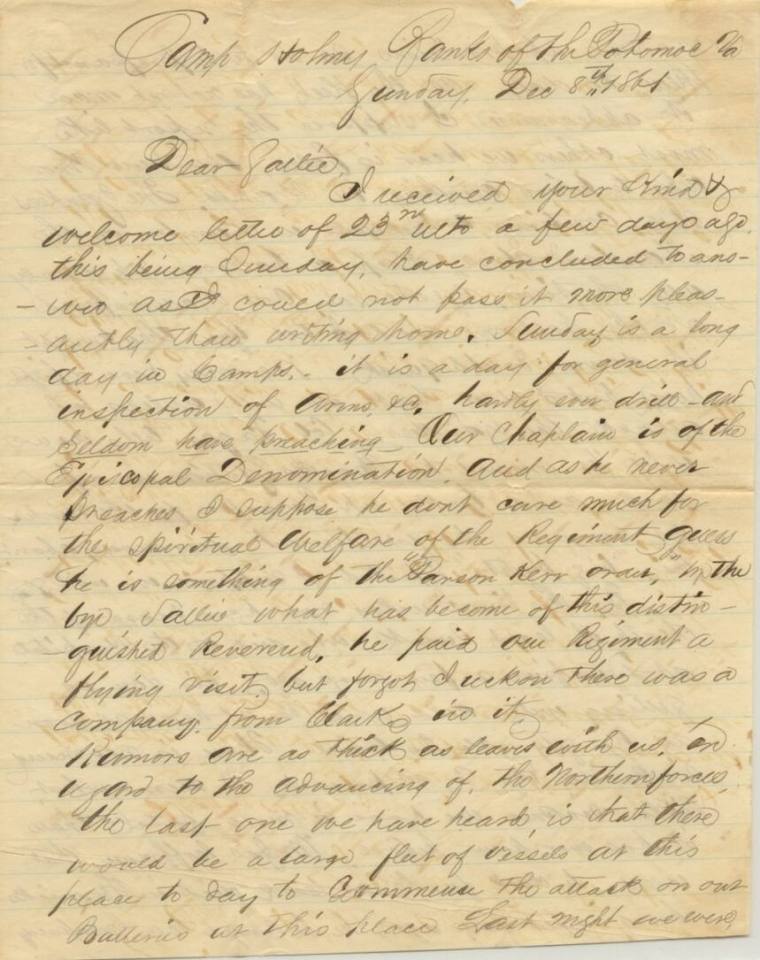 Camp Holmes Banks of the Potomac Va
Sunday, Dec 8th 1861
Dear Sallie,
I received your kind &
welcome letter of 23rd ulto a few days ago.
this being Sunday, have concluded to ans-
-wer as I could not pass it more pleas-
-antly than writing home. Sunday is a long
day in Camps. - it is a day for general
inspection of Arms, &c. hardly ever drill - and
seldom have preaching - Our Chaplain is of the
Episcopal Denomination. And as he never
preaches I suppose he dont care much for
the spiritual Welfare of the Regiment guess
he is something of the "Parson Kerr order," by the
bye Sallie what has become of this distin-
-guished Reverend, he paid our Regiment a
flying visit, but forgot I reckon there was a
Company from Clark in it
Rumors are as thick as leaves with us, in
regard to the advancing of the Northern forces,
the last one we have heard, is that there
would be a large fleet of vessels at this
place to day to Commence the attack on our
Batteries at this place Last night we were